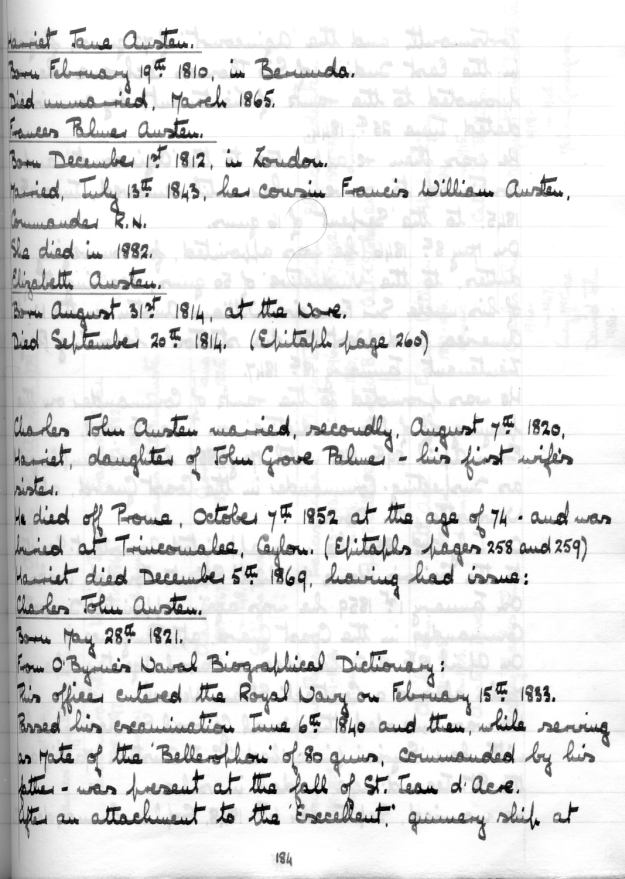 Harriet Jane Austen.
Born February 19th 1810, in Bermuda.
Died unmarried, March 1865.
Frances Palmer Austen.
Born December 1st 1812, in London.
Married, July 13th 1843, her cousin Francis William Austen,
Commander R.N.
She died in 1882.
Elizabeth Austen.
Born August 31st 1814, at the Nore.
Died September 20th 1814. (Epitaph page 260)
Charles John Austen married, secondly, August 7th 1820,
Harriet, daughter of John Grove Palmer - his first wife's
sister.
He died off Prome, October 7th 1852 at the age of 74 - and was
buried at Trincomalee, Ceylon. (Epitaphs pages 258 and 259)
Harriet died December 5th 1869, having had issue:
Charles John Austen.
Born May 28th 1821.
From O'Byrne's Naval Biographical Dictionary:
This officer entered the Royal Navy on February 15th 1833.
Passed his examination June 6th 1840 and then, while serving
as Mate of the 'Bellerophon' of 80 guns, commanded by his
father - was present at the fall of St. Jean d'Acre.
After an attachment to the "Excellent," gunnery ship at
184